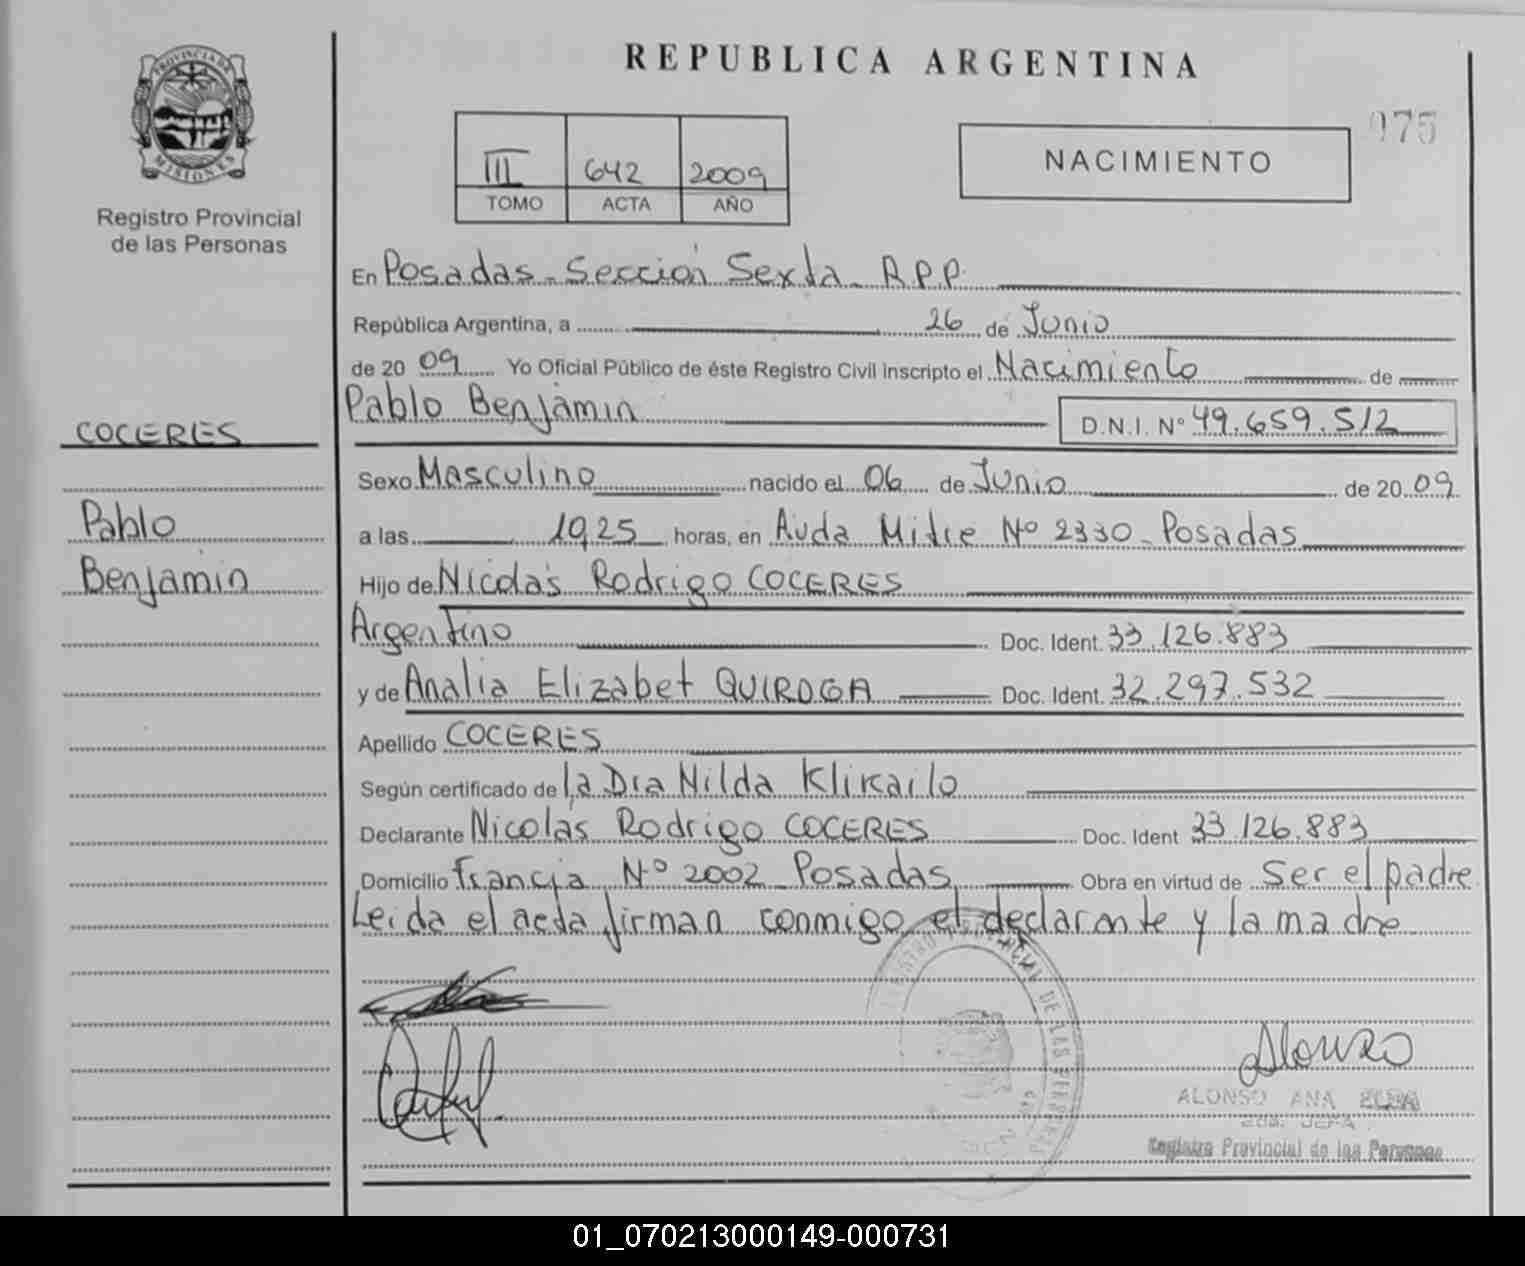 PROVINCIA DE
MISIONES
Registro Provincial
de las Personas
COCERES
Pablo
Benjamin
REPUBLICA ARGENTINA
III 642 2009
TOMO ACTA AÑO
NACIMIENTO
075
En Posadas - Sección Sexta - R.P.P.
República Argentina, a 26 de Junio
de 20 09 Yo Oficial Público de éste Registro Civil Inscripto el Nacimiento de
Pablo Benjamin D.N.I. Nº 49.659.512
Sexo Masculino nacido el 06 de Junio de 20 09
a las 19,25 horas, en Avda Mitre Nº 2330 - Posadas
Hijo de Nicolás Rodrigo COCERES
Argentino Doc. Ident. 33.126.883
y de Analia Elizabet QUIROGA Doc. Ident. 32.297.532
Apellido COCERES
Según certificado de la Dra Nilda Klikailo
Declarante Nicolás Rodrigo COCERES Doc. Ident 33.126.883
Domicilio Francia Nº 2002 Posadas Obra en virtud de Ser el padre
Leida el acta firman conmigo el declarante y la madre
Alonzo
ALONSO ANA ELBA
JEFA
Registro Provincial de las Personas
01_070213000149-000731